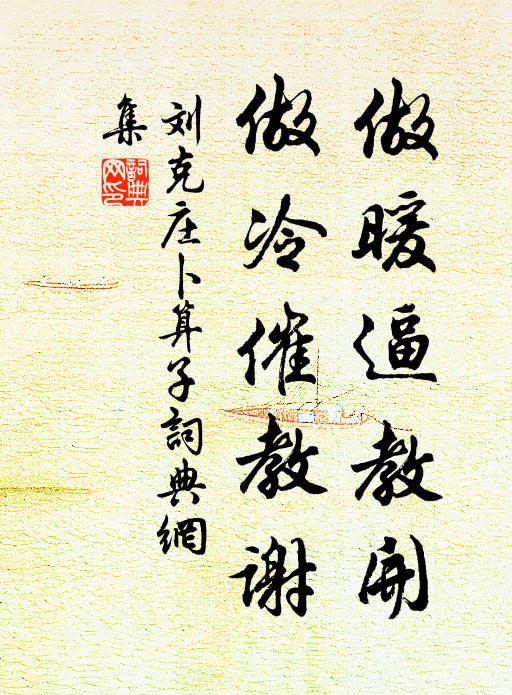 做暖逼教開
做冷催教谢
刘克庄卜算子詞典網
集
詞典
网印